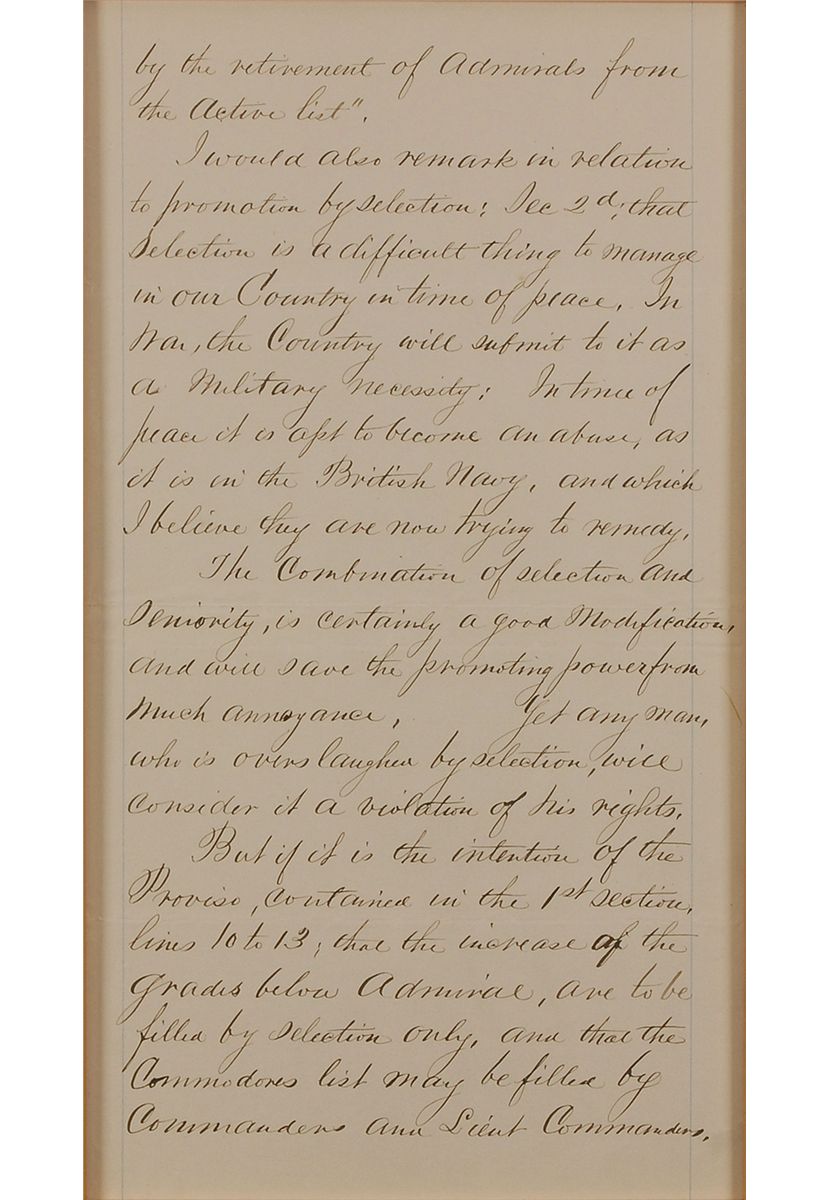 by the retirement of Admirals from
the Active list".
I would also remark in relation
to promotion by selection; Sec 2d; that
Selection is a difficult thing to manage
in our Country in time of peace. In
War, the Country will submit to it as
a Military necessity; In time of
peace it is apt to become an abuse, as
it is in the British Navy, and which
I believe they are now trying to remedy.
The Combination of selection and
Seniority, is certainly a good Modification,
and will save the promoting power from
Much annoyance. Yet any man,
who is overslaughed by selection, will
Consider it a violation of his rights.
But if it is the intention of the
Proviso, contained in the 1st section,
lines 10 to 13; that the increase of the
Grades below Admiral, are to be
filled by selection only, and that the
Commodores list may be filled by
Commanders and Lieut Commanders.